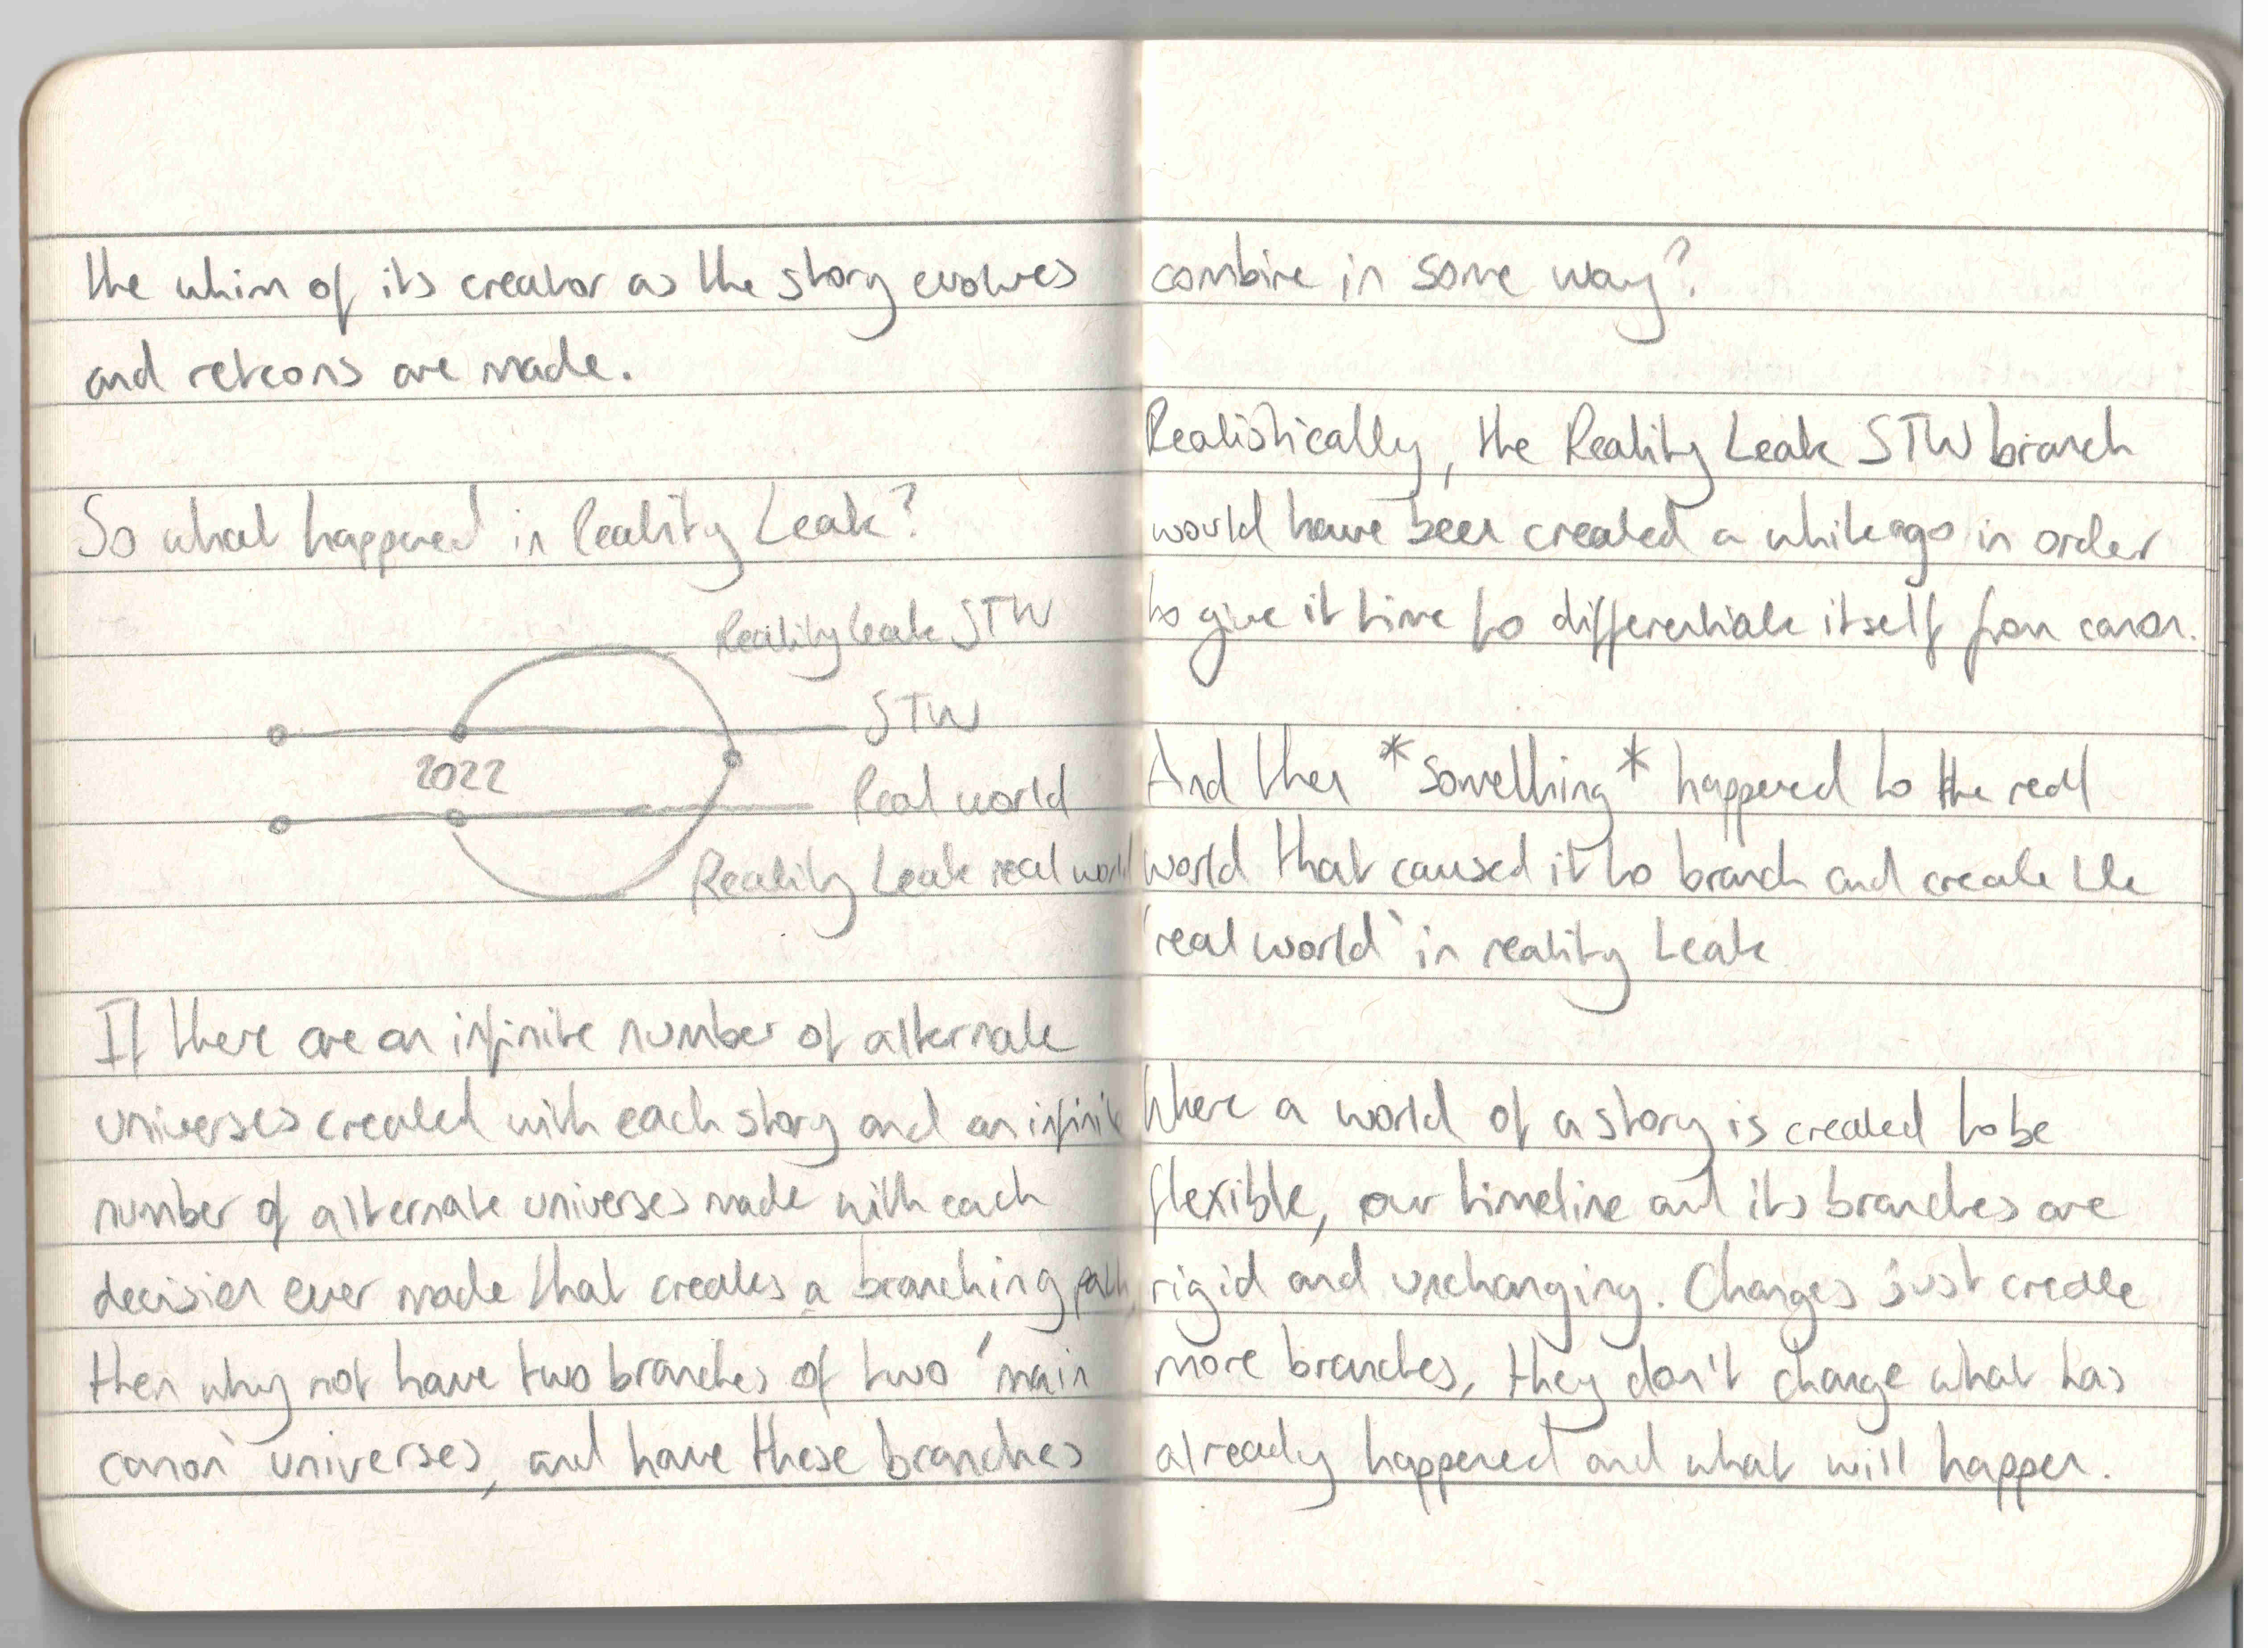 the whim of its creator as the story evolves
and retcons are made.
So what happened in Reality Leak?
Reality Leak STW
STW
2022
Real world
Reality Leak real world
If there are an infinite number of alternate
universes created with each story and an infinite
number of alternate universes made with each
decision ever made that creates a branching path,
then why not have two branches of two 'main
canon' universes, and have these branches
combine in some way?
Realistically, the Reality Leak STW branch
would have been created a while ago in order
to give it time to differentiate itself from canon.
And then *something* happened to the real
world that caused it to branch and create the
'real world' in reality Leak
Where a world of a story is created to be
flexible, our timeline and its branches are
rigid and unchanging. Changes just create
more branches, they don't change what has
already happened and what will happen.